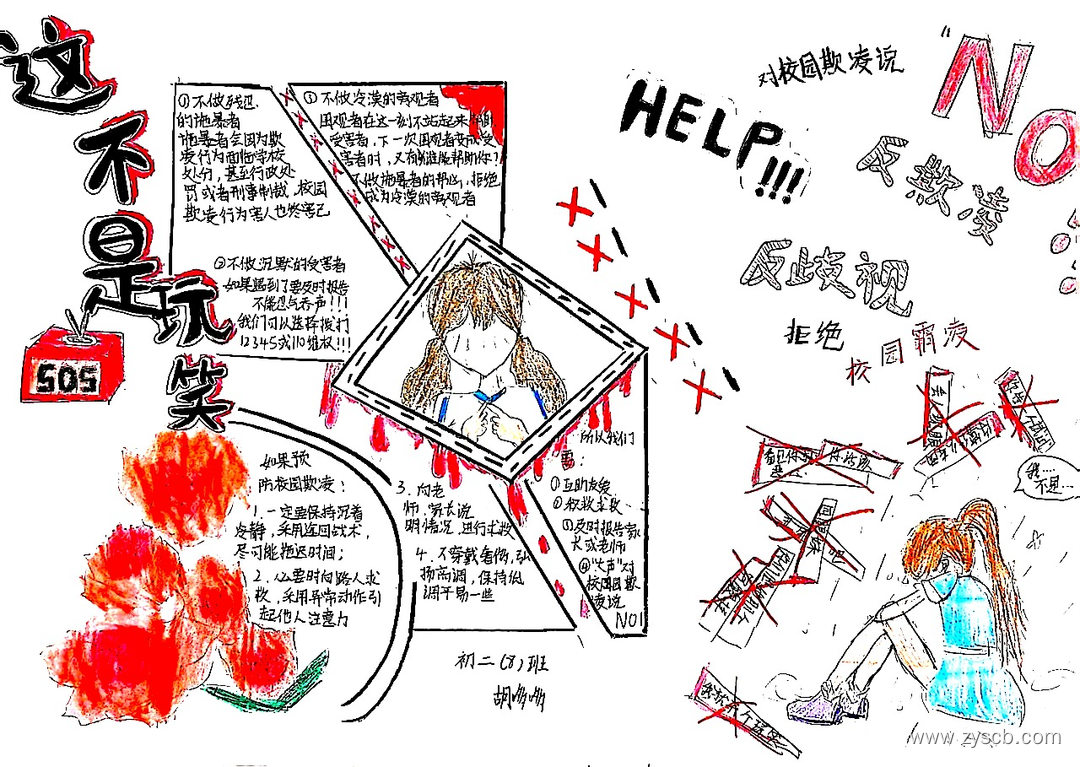 这不是玩笑
SOS
①不做残忍
的施暴者
施暴者会因为欺
凌行为面临学校
处分，甚至行政处
罚或者刑事制裁，校园
欺凌行为害人也终害己
①不做冷漠的旁观者
围观者在这一刻不站起来帮助
受害者，下一次围观者变成受
害者时，又有谁能帮助你？
不做施暴者的帮凶，拒绝
成为冷漠的旁观者
②不做沉默的受害者
如果遇到了要及时报告
不能忍气吞声!!!
我们可以选择拨打
12345或110维权!!!
如果预
防校园欺凌：
1.一定要保持沉着
冷静，采用迂回战术，
尽可能拖迟时间；
2.必要时向路人求
救，采用异常动作引
起他人注意力
3.向老
师、家长说
明情况，进行求救
4.不穿戴奢侈，
扬高调，保持低
调平易一些
所以我们
需：
①互助友爱
②积救求救
③及时报告家
长或老师
④"大声"对
校园园欺
凌说
NO!
初二(8)班
对校园欺凌说
"NO!
HELP!!!
反欺凌
反歧视
拒绝
校园霸凌
我…
不是…
www.zyscb.com